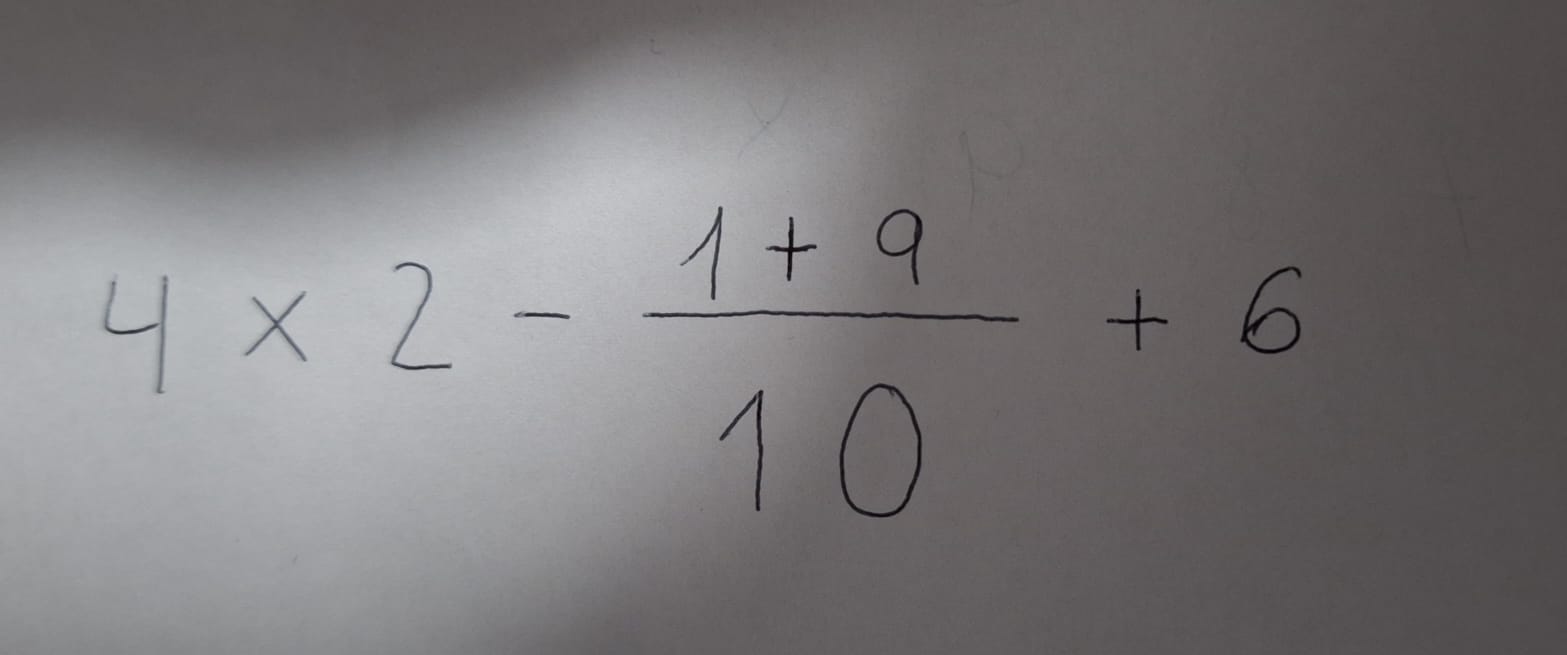 4 × 2 - \frac{1 + 9}{10} + 6